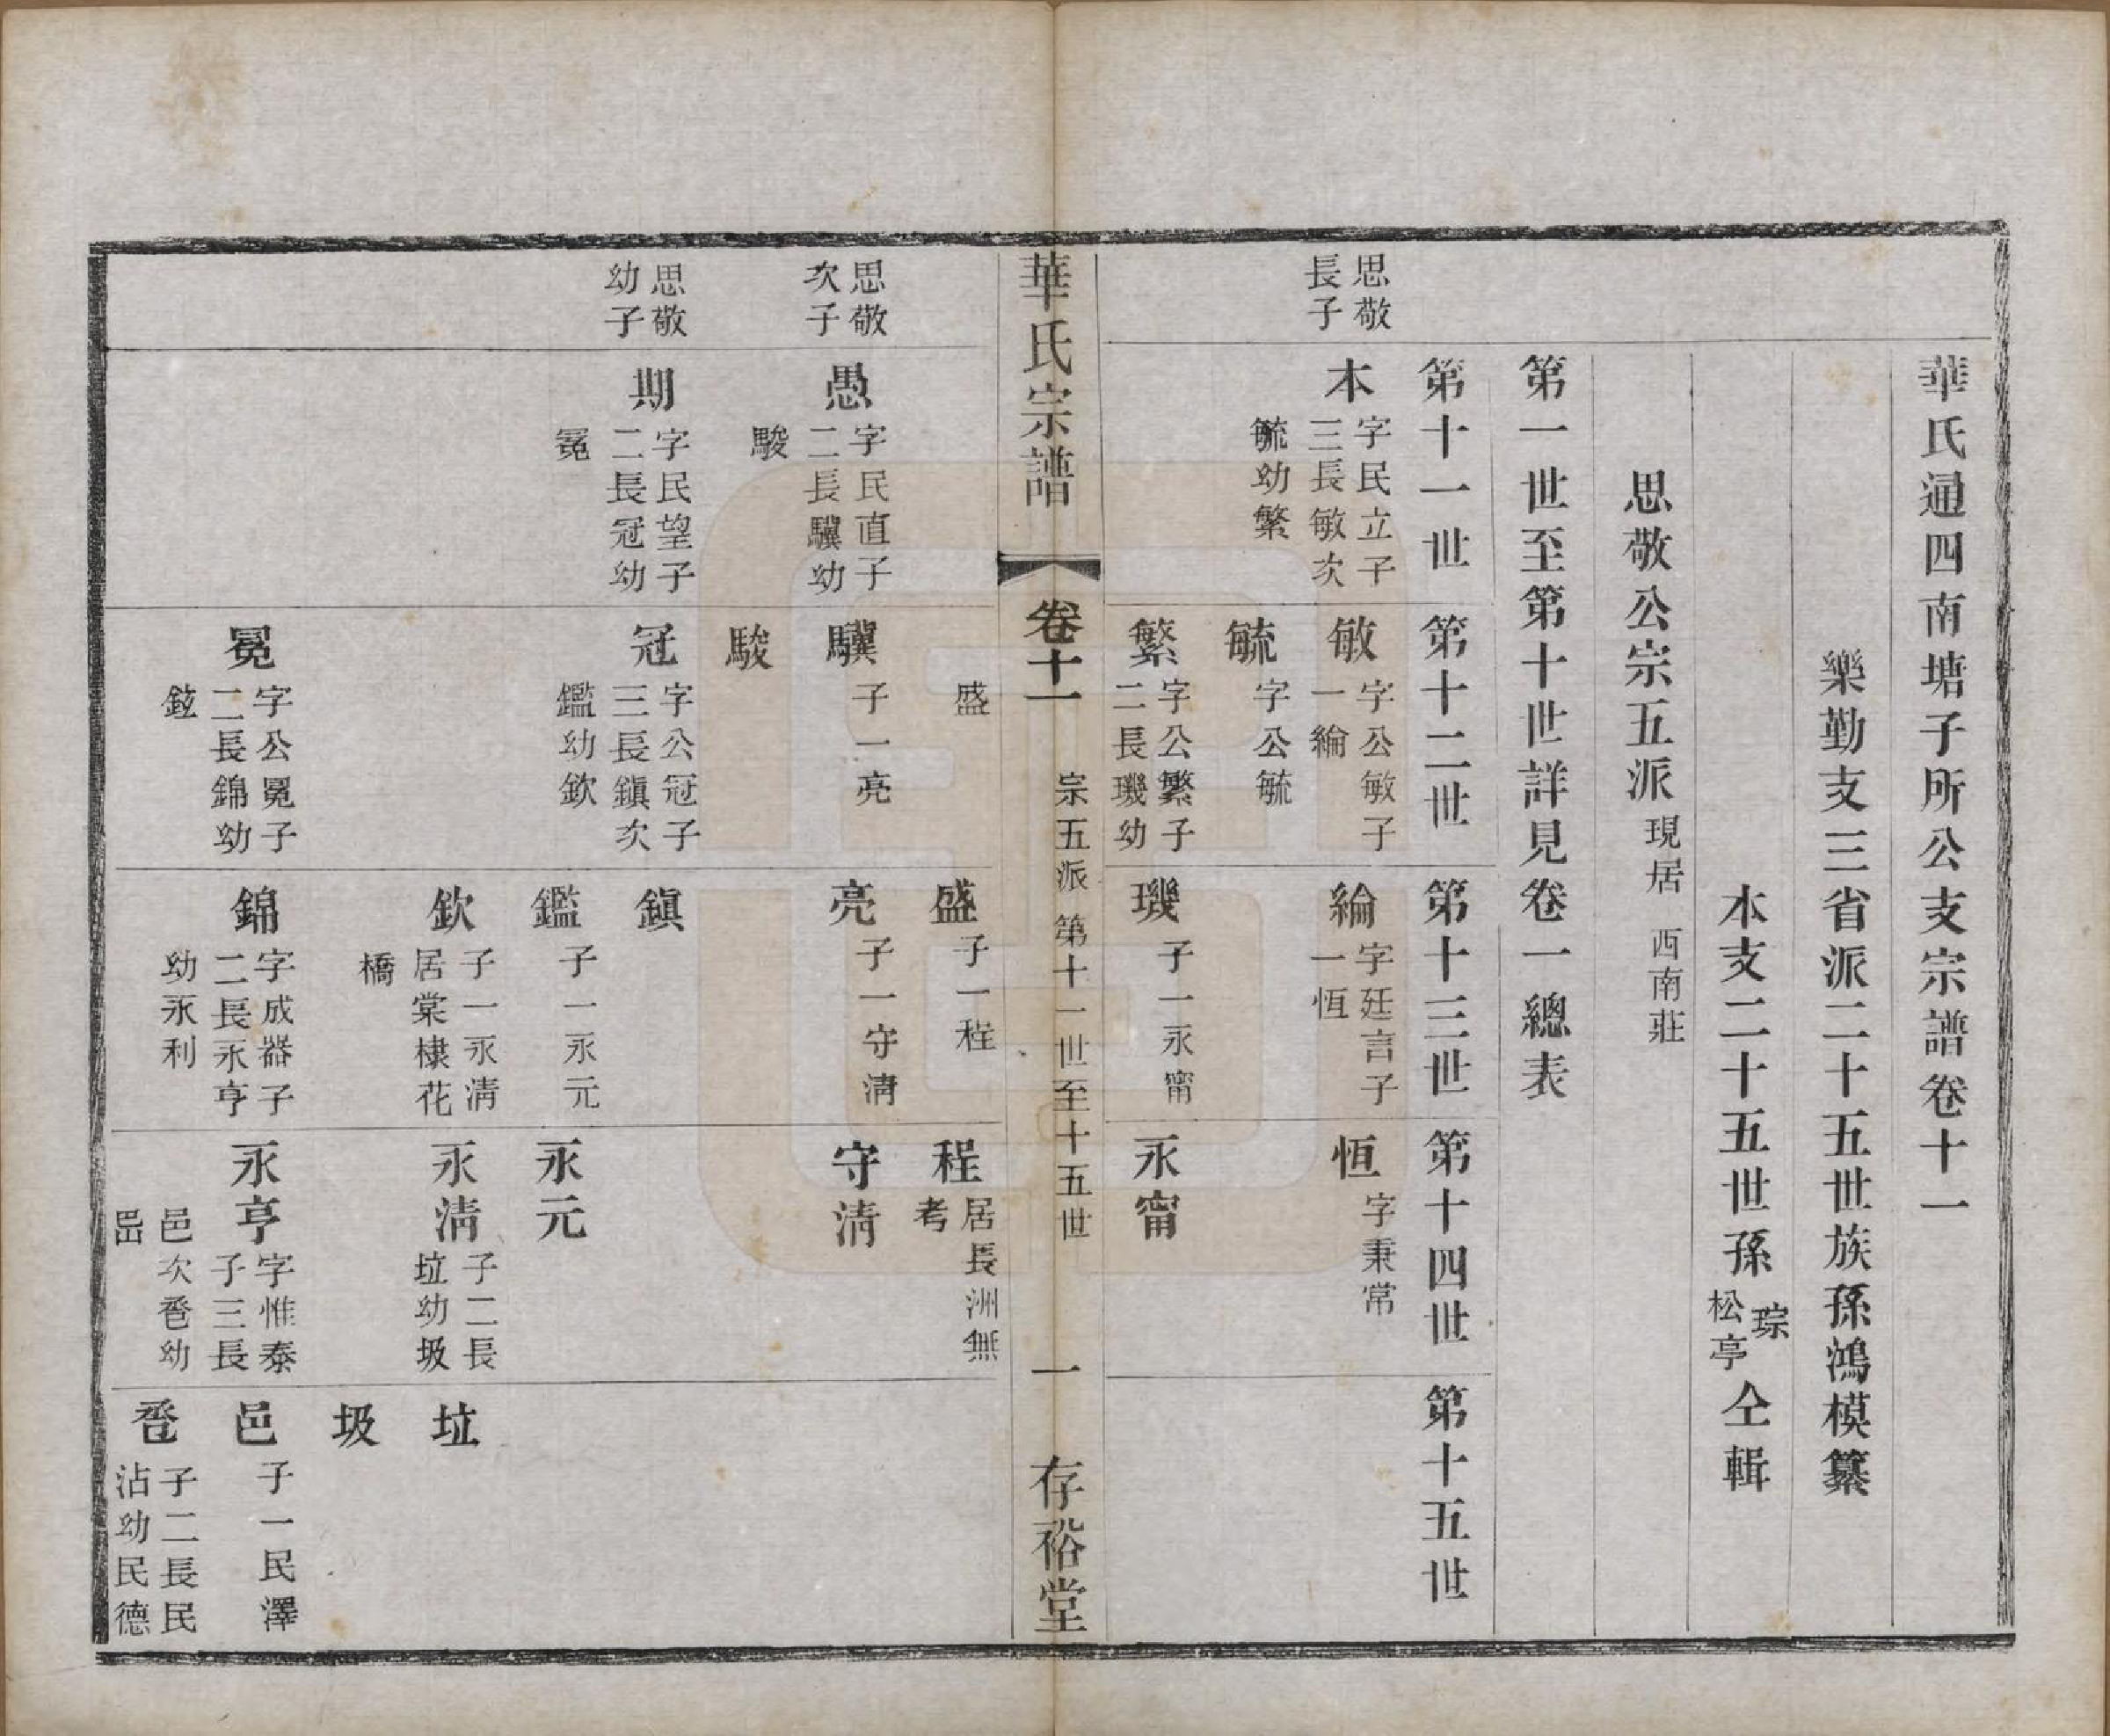 華氏通四南塘子所公支宗譜卷十一
樂勤支三省派二十五世族孫鴻模纂
本支二十五世孫琮松亭仝輯
思敬公宗五派現居西南莊
第一世至第十世詳見卷一總表
第十一世
第十二世
第十三世
第十四世
第十五世
思敬
長子
本
字民立子
三長敏次
毓幼繁
敏
字公敏子
一綸
毓
字公毓
繁
字公繁子
二長璣幼
盛
綸
字廷言子
一恆
璣
子一永甯
恆
字秉常
永甯
華氏宗譜
卷十一
宗五派第十一世至十五世
一
存裕堂
思敬
次子
愚
字民直子
二長驥幼
駿
思敬
幼子
期
字民望子
二長冠幼
冕
驥
子一亮
駿
冠
字公冠子
三長鎮次
鑑幼欽
冕
字公冕子
二長錦幼
鉉
盛
子一程
亮
子一守清
鎮
鑑
子一永元
欽
子一永清
居棠棣花
橋
錦
字成器子
二長永亨
幼永利
程
居長洲無
考
守清
永元
永清
子二長
垃幼圾
永亨
字惟泰
子三長
邑次卺幼
垃
圾
邑
子一民澤
卺
子二長民
沾幼民德